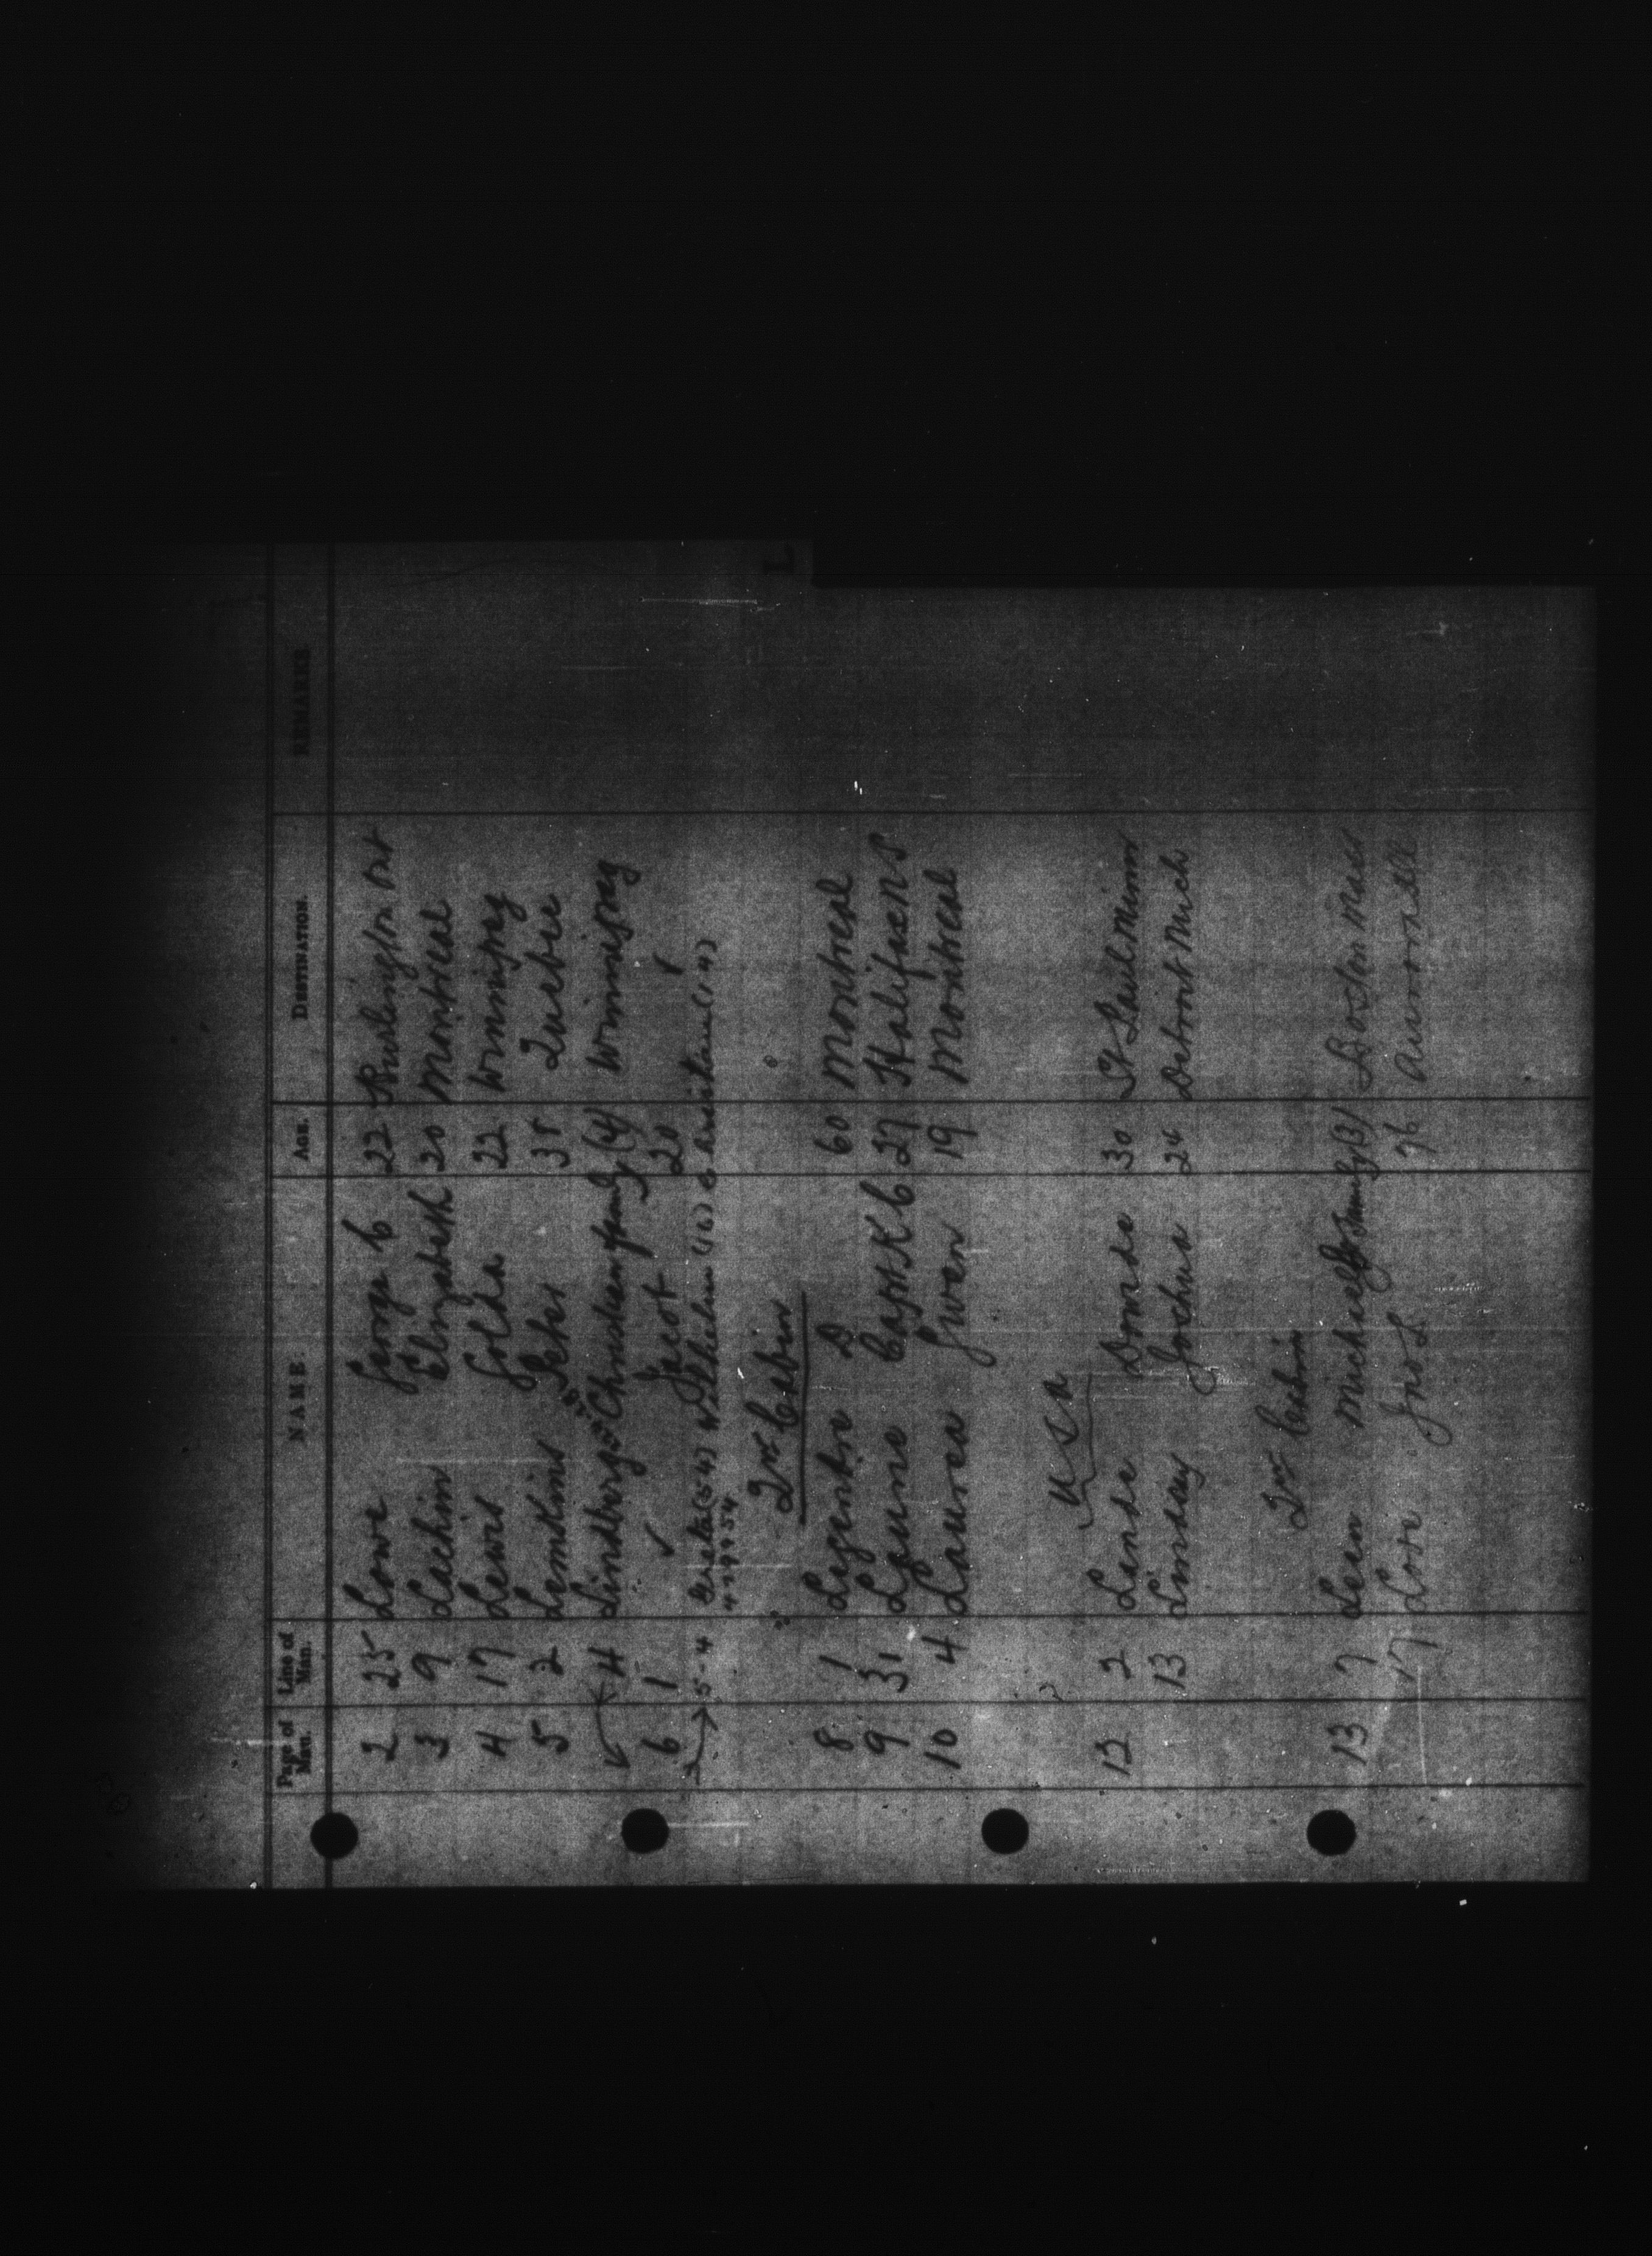 Page of Man. Line of Man. NAME. AGE. DESTINATION. REMARKS
2 25 Lowe George C 22 Burlington Ont
3 9 Lachin Elizabeth 20 Montreal
4 17 Lewis Golda 22 Winnipeg
5 2 Lemkins Peter 38 Quebec
4 Lindberg Christian family (4) Winnipeg
6 1 ✓ Jacob 20 ✓
5-4 (54) Wilhelm (16) (14)
L
2nd Cabin
8 1 Legendre D 60 Montreal
9 31 Layme Capt K C 27 Halifax N S
10 4 Laurea Gwen 19 Montreal
U S A
12 2 Lande 30 St Paul Minn
13 Lindsay Joshua 24 Detroit Mich
2nd Cabin
13 7 Leen Michael & family (3) Boston Mass
17 Love Jno L 76